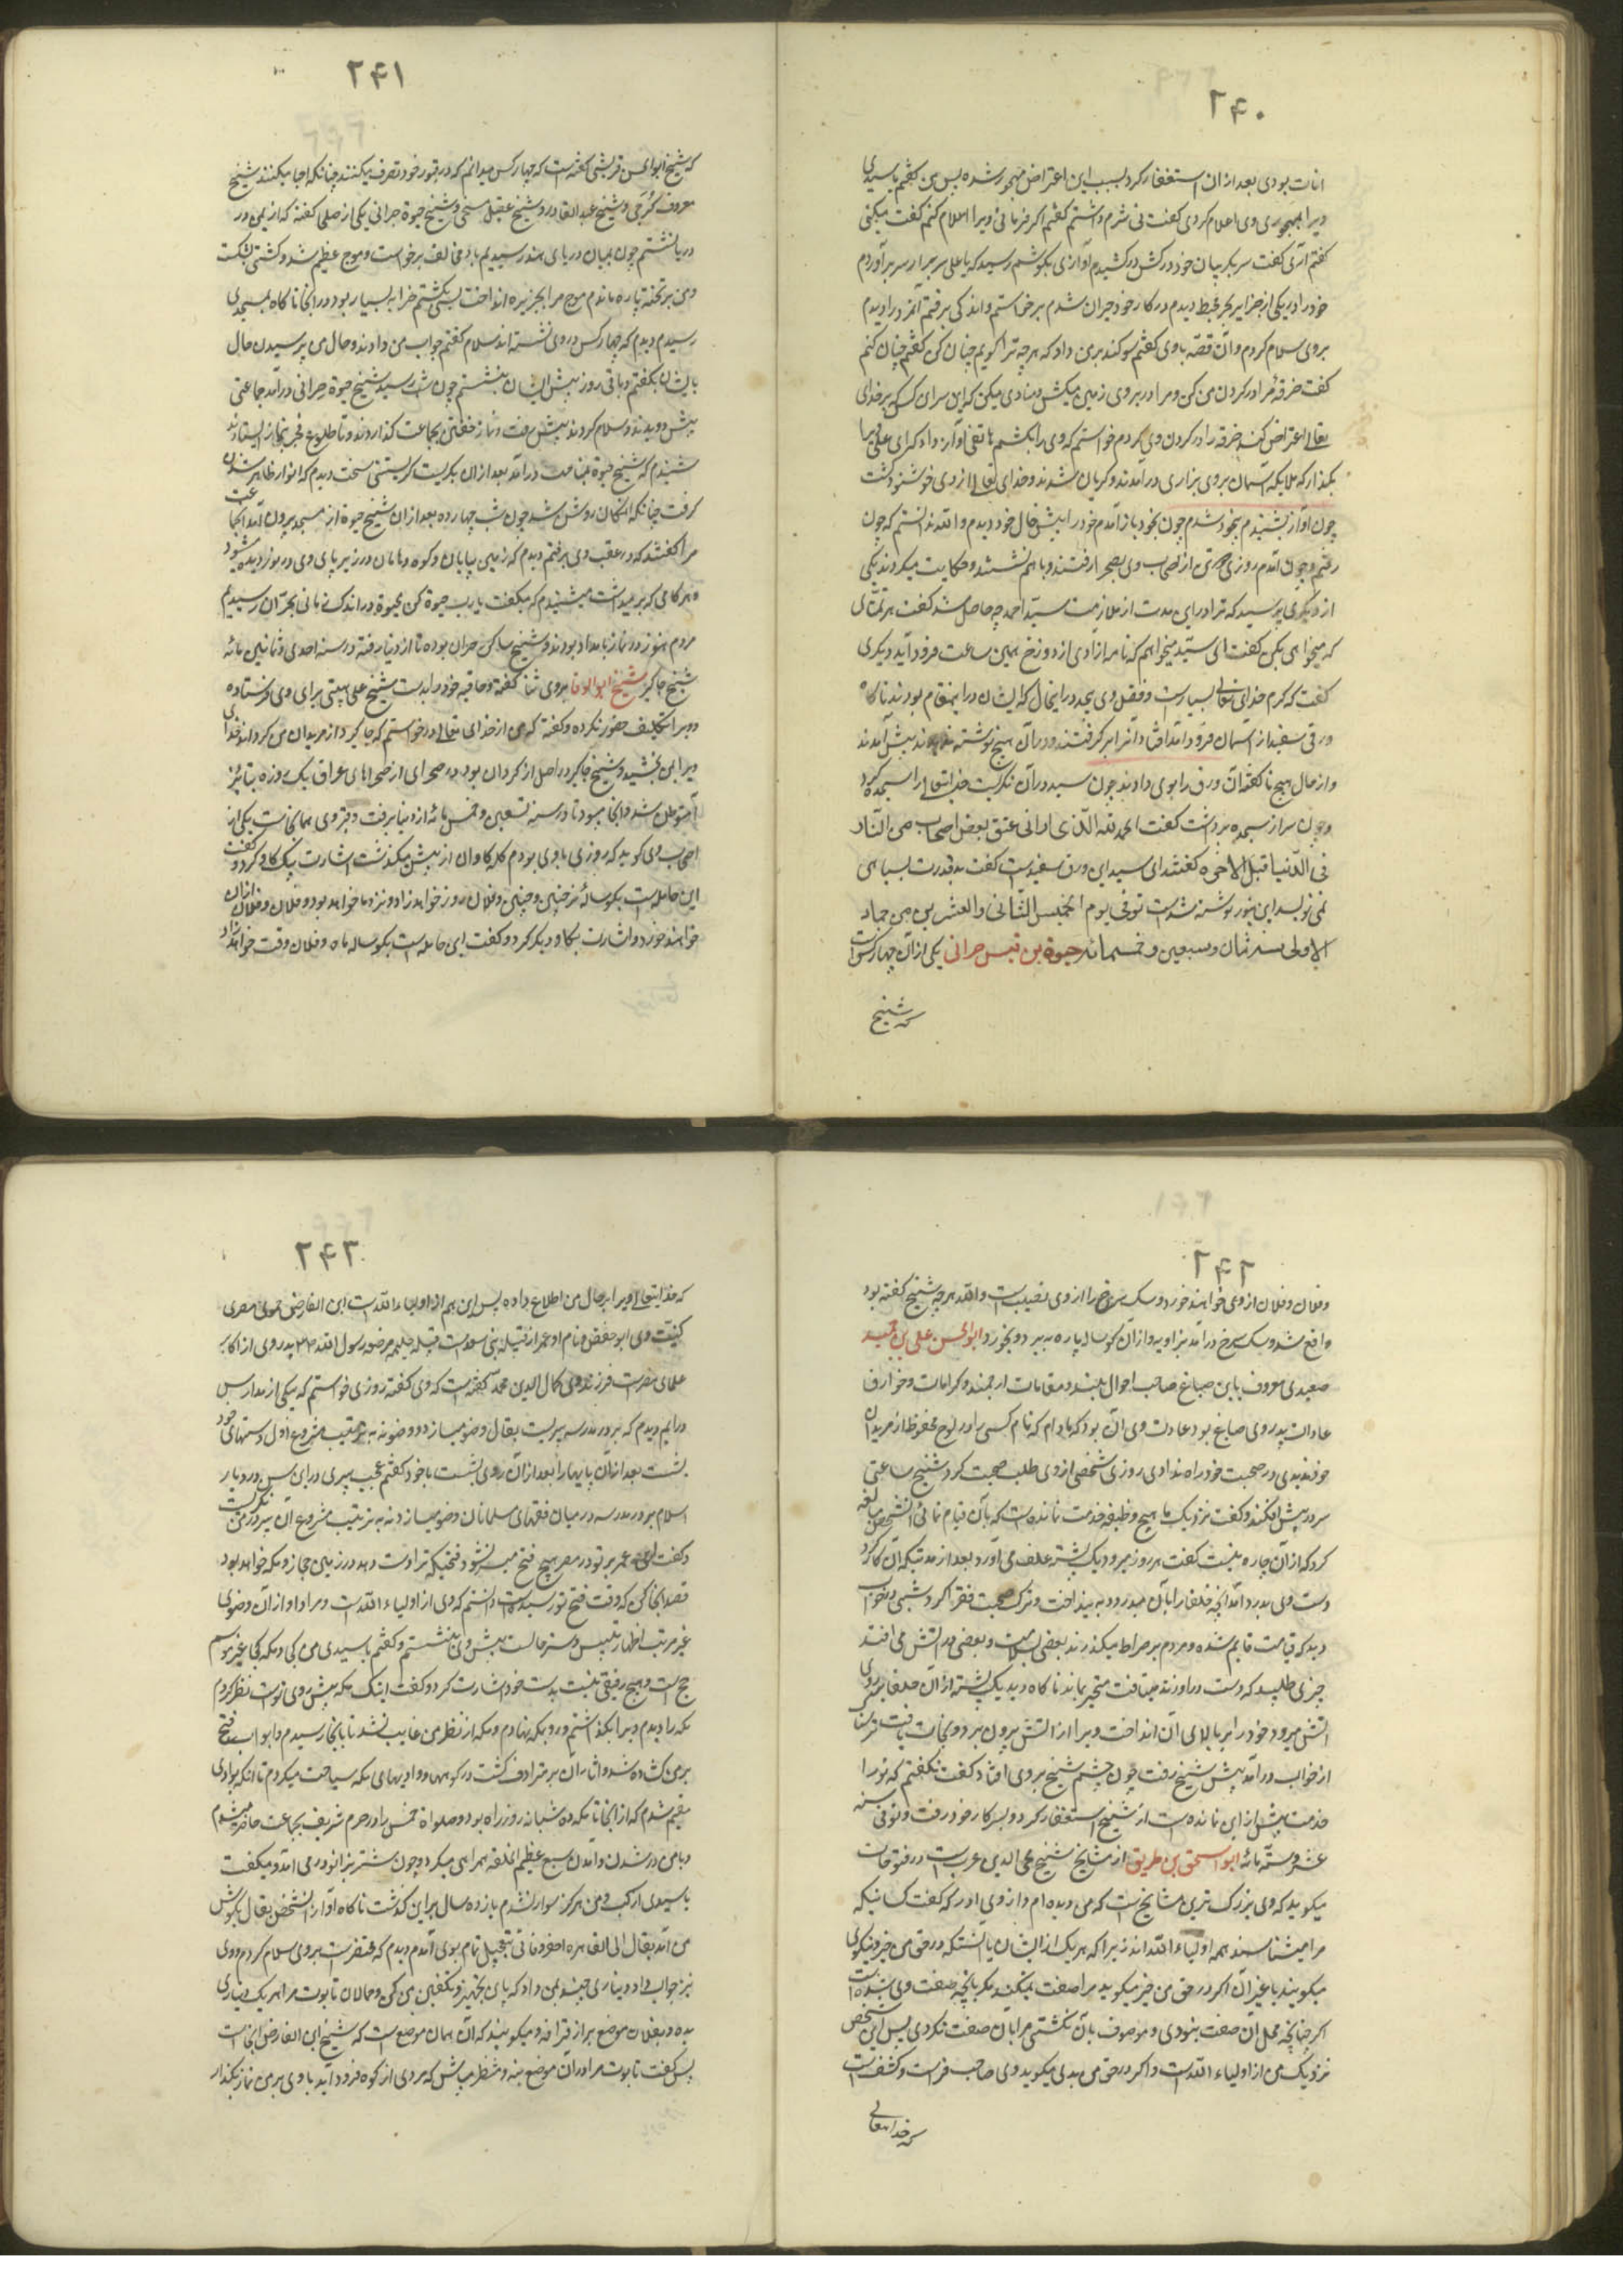 ۲۴۰
انات بودی بعد ازان استغفار کرد بسبب این اعتراض مهجور شده پس من گفتم یا سیدی
ویرا بمهجوری وی اعلام کردی گفت نی شرم داشتم گفتم اگر فرمائی ویرا اعلام کنم گفت میکنی
گفتم آری گفت سر بگریبان خود درکش درکشیدم آوازی بگوشم رسید که یا علی سر برآر سر برآوردم
خود را در یکی از جزایر بحر محیط دیدم در کار خود حیران شدم برخاستم و اندکی برفتم آنمرد را دیدم
بروی سلام کردم و آن قصه با وی گفتم سوگند بر من داد که هرچه ترا گویم چنان کن گفتم چنان کنم
گفت خرقه مرا در گردن من کن و مرا در روی زمین میکش و منادی میکن که این سزای کسی که بر خدای
تعالی اعتراض کند خرقه را در گردن وی کردم خواستم که وی را بکشم هاتفی آواز داد که ای علی ویرا
بگذار که ملایکه آسمان بروی بزاری درآمدند و گریان شدند و خدای تعالی از وی خوشنود گشت
چون آواز بشنیدم بیخود شدم چون بخود باز آمدم خود را پیش خال خود دیدم والله ندانستم که چون
رفتم و چون آمدم روزی از اصحاب وی بصحرا رفتند و با هم نشستند و حکایت میکردند یکی
از دیگری پرسید که ترا درین مدت از ملازمت سید احمد چه حاصل شد گفت هر تمنائی
که میخواهی بکن گفت ای سید میخواهم که نامه ازادی از دوزخ همین ساعت فرود آید دیگری
گفت که کرم خدای تعالی بسیارست و فضل وی بیحد در اینحال که ایشان در اینمقام بودند ناگاه
ورقی سفید از آسمان فرود آمد افتاد آنرا برگرفتند و در آن هیچ نوشته ندیدند پیش آمدند
و از حال هیچ ناگفته آن ورق را بوی دادند چون سید در آن نگریست خدایتعالی را سجده کرد
و چون سر از سجده برداشت گفت الحمد لله الذی ارانی عتق بعض اصحابی من النار
فی الدنیا قبل الاخره گفتند ای سید این ورق سفیدست گفت ید قدرت بسیاهی
نمی نویسد این بنور نوشته شده است توفی یوم الخمیس الثانی والعشرین من جماد
الاولی سنه ثمان و سبعین و خمسمائه حیوة بن قیس حرانی یکی از آن چهار کس است
که شیخ
۲۴۱
که شیخ ابوالحسن قریشی گفته است که چهار کس میدانم که در قبور خود تصرف میکنند چنانکه احیا میکنند شیخ
معروف کرخی و شیخ عبدالقادر و شیخ عقیل منبجی و شیخ حیوة حرانی یکی از صلحا گفته که از یمن در
دریا نشستم چون بمیان دریای هند رسیدیم باد مخالف برخواست و موج عظیم شد و کشتی بشکست
و من بر تخته پاره ماندم موج مرا بجزیره انداخت بسی گشتم خرابه بسیار بود در انجا ناگاه بمسجدی
رسیدم دیدم که چهار کس در وی نشسته اند سلام گفتم جواب من دادند و حال من پرسیدن حال
با ایشان بگفتم و باقی روز پیش ایشان بنشستم چون شب رسید شیخ حیوة حرانی درآمد جماعتی
پیش دویدند و سلام کردند پیش رفت و نماز خفتن بجماعت گذاردند و تا طلوع فجر بنماز ایستادند
شنیدم که شیخ حیوة بمناجات درآمد بعد ازان بگریست گریستنی سخت دیدم که انوار ظاهر شدن
گرفت چنانکه آنمکان روشن شد چون شب چهارده بعد ازان شیخ حیوة از مسجد بیرون آمد آنجماعت
مرا گفتند که در عقب وی برفتم دیدم که زمین بیابان و کوه و هامان در زیر پای وی در نوردیده میشود
و هر گامی که برمیداشت میشنیدم که میگفت یارب حیوة کن بحیوة در اندک زمانی بحران رسیدیم
مردم هنوز در نماز بامداد بودند و شیخ ساکن حران بوده تا از دنیا رفته در سنه احدی و ثمانین مائه
شیخ جاگیر شیخ ابوالوفا بروی ثنا گفته و طاقیه خود را بدست شیخ علی هیتی برای وی فرستاده
و ویرا تکلیف حضور نکرده و گفته که من از خدای تعالی درخواستم که جاگیر از مریدان من گرداند خدای
ویرا بمن بخشید و شیخ جاگیر در اصل از کردان بوده صحرای از صحراهای عراق یک روزه بسامره
متوطن شد و آنجا میبود تا در سنه تسعین و خمس مائه از دنیا برفت و قبر وی همانجاست یکی از
اصحاب وی گوید که روزی با وی بودم گله گاوان از پیش میگذشت اشارت بیک گاو کرد و گفت
این حامله است بگوساله نر چنین و چنین و فلان روز خواهد زاد و نزد ما خواهد بود و فلان و فلان ازان
خواهند خورد و اشارت بگاو دیگر کرد و گفت این حامله است بگوساله ماده و فلان وقت خواهد زاد
۲۴۲
و فلان و فلان از وی خواهند خورد و سگ سرخ را از وی نصیب است والله هرچه شیخ گفته بود
واقع شد و سگ سرخ درآمد بزاویه و از آن گوساله پاره ببرد و بخورد ابوالحسن علی بن حمید
صعیدی معروف بابن صباغ صاحب احوال بلند و مقامات ارجمند و کرامات و خوارق
عادات پدر وی صباغ بود عادت وی آن بود که مادام که نام کسی را در لوح محفوظ از مریدان
خود ندیدی در صحبت خود راه ندادی روزی شخصی از وی طلب صحبت کرد شیخ ساعتی
سر در پیش افکند و گفت نزدیک ما هیچ وظیفه خدمت نمانده است که بآن قیام نمائی آنشخص مبالغه
کرد که از آن چاره نیست گفت هر روز میرو و یک پشته علف می آور و بعد از مدتیکه آن کار کرد
دست وی بدرد آمد آنچه خلفا را بآن میدرود بینداخت و ترک صحبت فقرا کرد شبی در خواب
دید که قیامت قایم شده و مردم بر صراط میگذرند بعضی بسلامت و بعضی در آتش می افتند
چیزی طلبید که دست در او زند نیافت متحیر بماند ناگاه دید یک پشته از آن خلفا بر روی
آتش میرود خود را بر بالای آن انداخت ویرا از آتش بیرون برد و نجات یافت ترسان
از خواب درآمد پیش شیخ رفت چون چشم شیخ بر وی افتاد گفت نگفتم که تو را
خدمت پیش از این نمانده است از شیخ استغفار کرد و بسر کار خود رفت و توفی سنه
عشر و ستمائه ابو اسحق بن طریف از مشایخ شیخ محی الدین عرب است در فتوحات
میگوید که وی بزرگ ترین مشایخ است که من دیده ام و از وی آورد که گفت کسانیکه
مرا میشناسند همه اولیاء الله اند زیرا که هریک از ایشان یا آنستکه در حق من خیر و نیکوی
میگویند یا غیر آن اگر در حق من خیر میگوید مرا صفت نمیکند مگر بانچه صفت وی شده است
اگر چنانچه محل آن صفت نبودی و موصوف بآن نگشتی مرا بآن صفت نکردی پس این شخص
نزدیک من از اولیاء الله است و اگر در حق من بدی میگوید وی صاحب فراست و کشف است
که خدایتعالی
۲۴۳
که خدایتعالی ویرا بر حال من اطلاع داده پس این هم از اولیاء الله است ابن الفارض حموی مصری
کنیت وی ابو حفض و نام او عمر از قبیله بنی سعدست قبیله حلیمه مرضعه رسول الله پدر وی از اکابر
علمای مصر است فرزند وی کمال الدین محمد گفته است که وی گفته روزی خواستم که بیکی از مدارس
درایم دیدم که بر در مدرسه پیریست بقال وضو میسازد و وضو نه به ترتیب مشروع اول دستهای خود
بشست بعد ازان پایها را بعد ازان روی بشست با خود گفتم عجب پیری در این سن در دیار
اسلام بر در مدرسه در میان فقهای مسلمانان وضو میسازد نه به ترتیب مشروع آن پیر در من نگریست
و گفت ای عمر بر تو در مصر هیچ فتح میسر نشود فتحیکه تراست دهد در زمین حجاز و مکه خواهد بود
قصد آنجا کن که وقت فتح تو رسیده است دانستم که وی از اولیاء الله است و مراد او از آن وضوی
غیر مرتب اظهار تلبیس و ستر حالست پیش وی بنشستم و گفتم یا سیدی من کجا و مکه کجا غیر موسم
حج است و هیچ رفیقی نیست بدست خود اشارت کرد و گفت اینک مکه پیش روی توست نظر کردم
مکه را دیدم ویرا بگذاشتم و رو بمکه نهادم و مکه از نظر من غایب نشد تا بآنجا رسیدم و ابواب فتح
بر من گشاده شد و اثار آن بر مترادف گشت در کوهها و وادیهای مکه سیاحت میکردم تا آنکه بوادی
مقیم شدم که از انجا تا مکه ده شبانه روز راه بود و صلوات خمس را در حرم شریف بجماعت حاضر میشدم
و با من در شدن و آمدن سبع عظیم الخلقه همراهی میکرد و چون شتر بزانو درمی آمد و میگفت
یا سیدی ارکب و من هرگز سوار نشدم پانزده سال بر این گذشت ناگاه آواز آنشخص بقال بگوش
من آمد یقال الی القاهره احضر وفاتی بتعجیل تمام بوی آمدم دیدم که محتضرست بر وی سلام کردم و وی
نیز جواب داد و دیناری چند بمن داد که باین تجهیز و تکفین من کن و حمالان تابوت مرا هریک دیناری
بده و بفلان موضع براز قرافه و میگویند که آن همان موضع است که شیخ ابن الفارض آنجاست
پس گفت تابوت مرا در آن موضع بنه و منتظر میباش که مردی از کوه فرود آید با وی بر من نماز بگذار